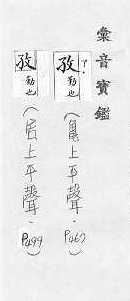 彙音寶鑑
孜 勤也 (龜上平聲. P467)
孜 勤也 (居上平聲. P499)